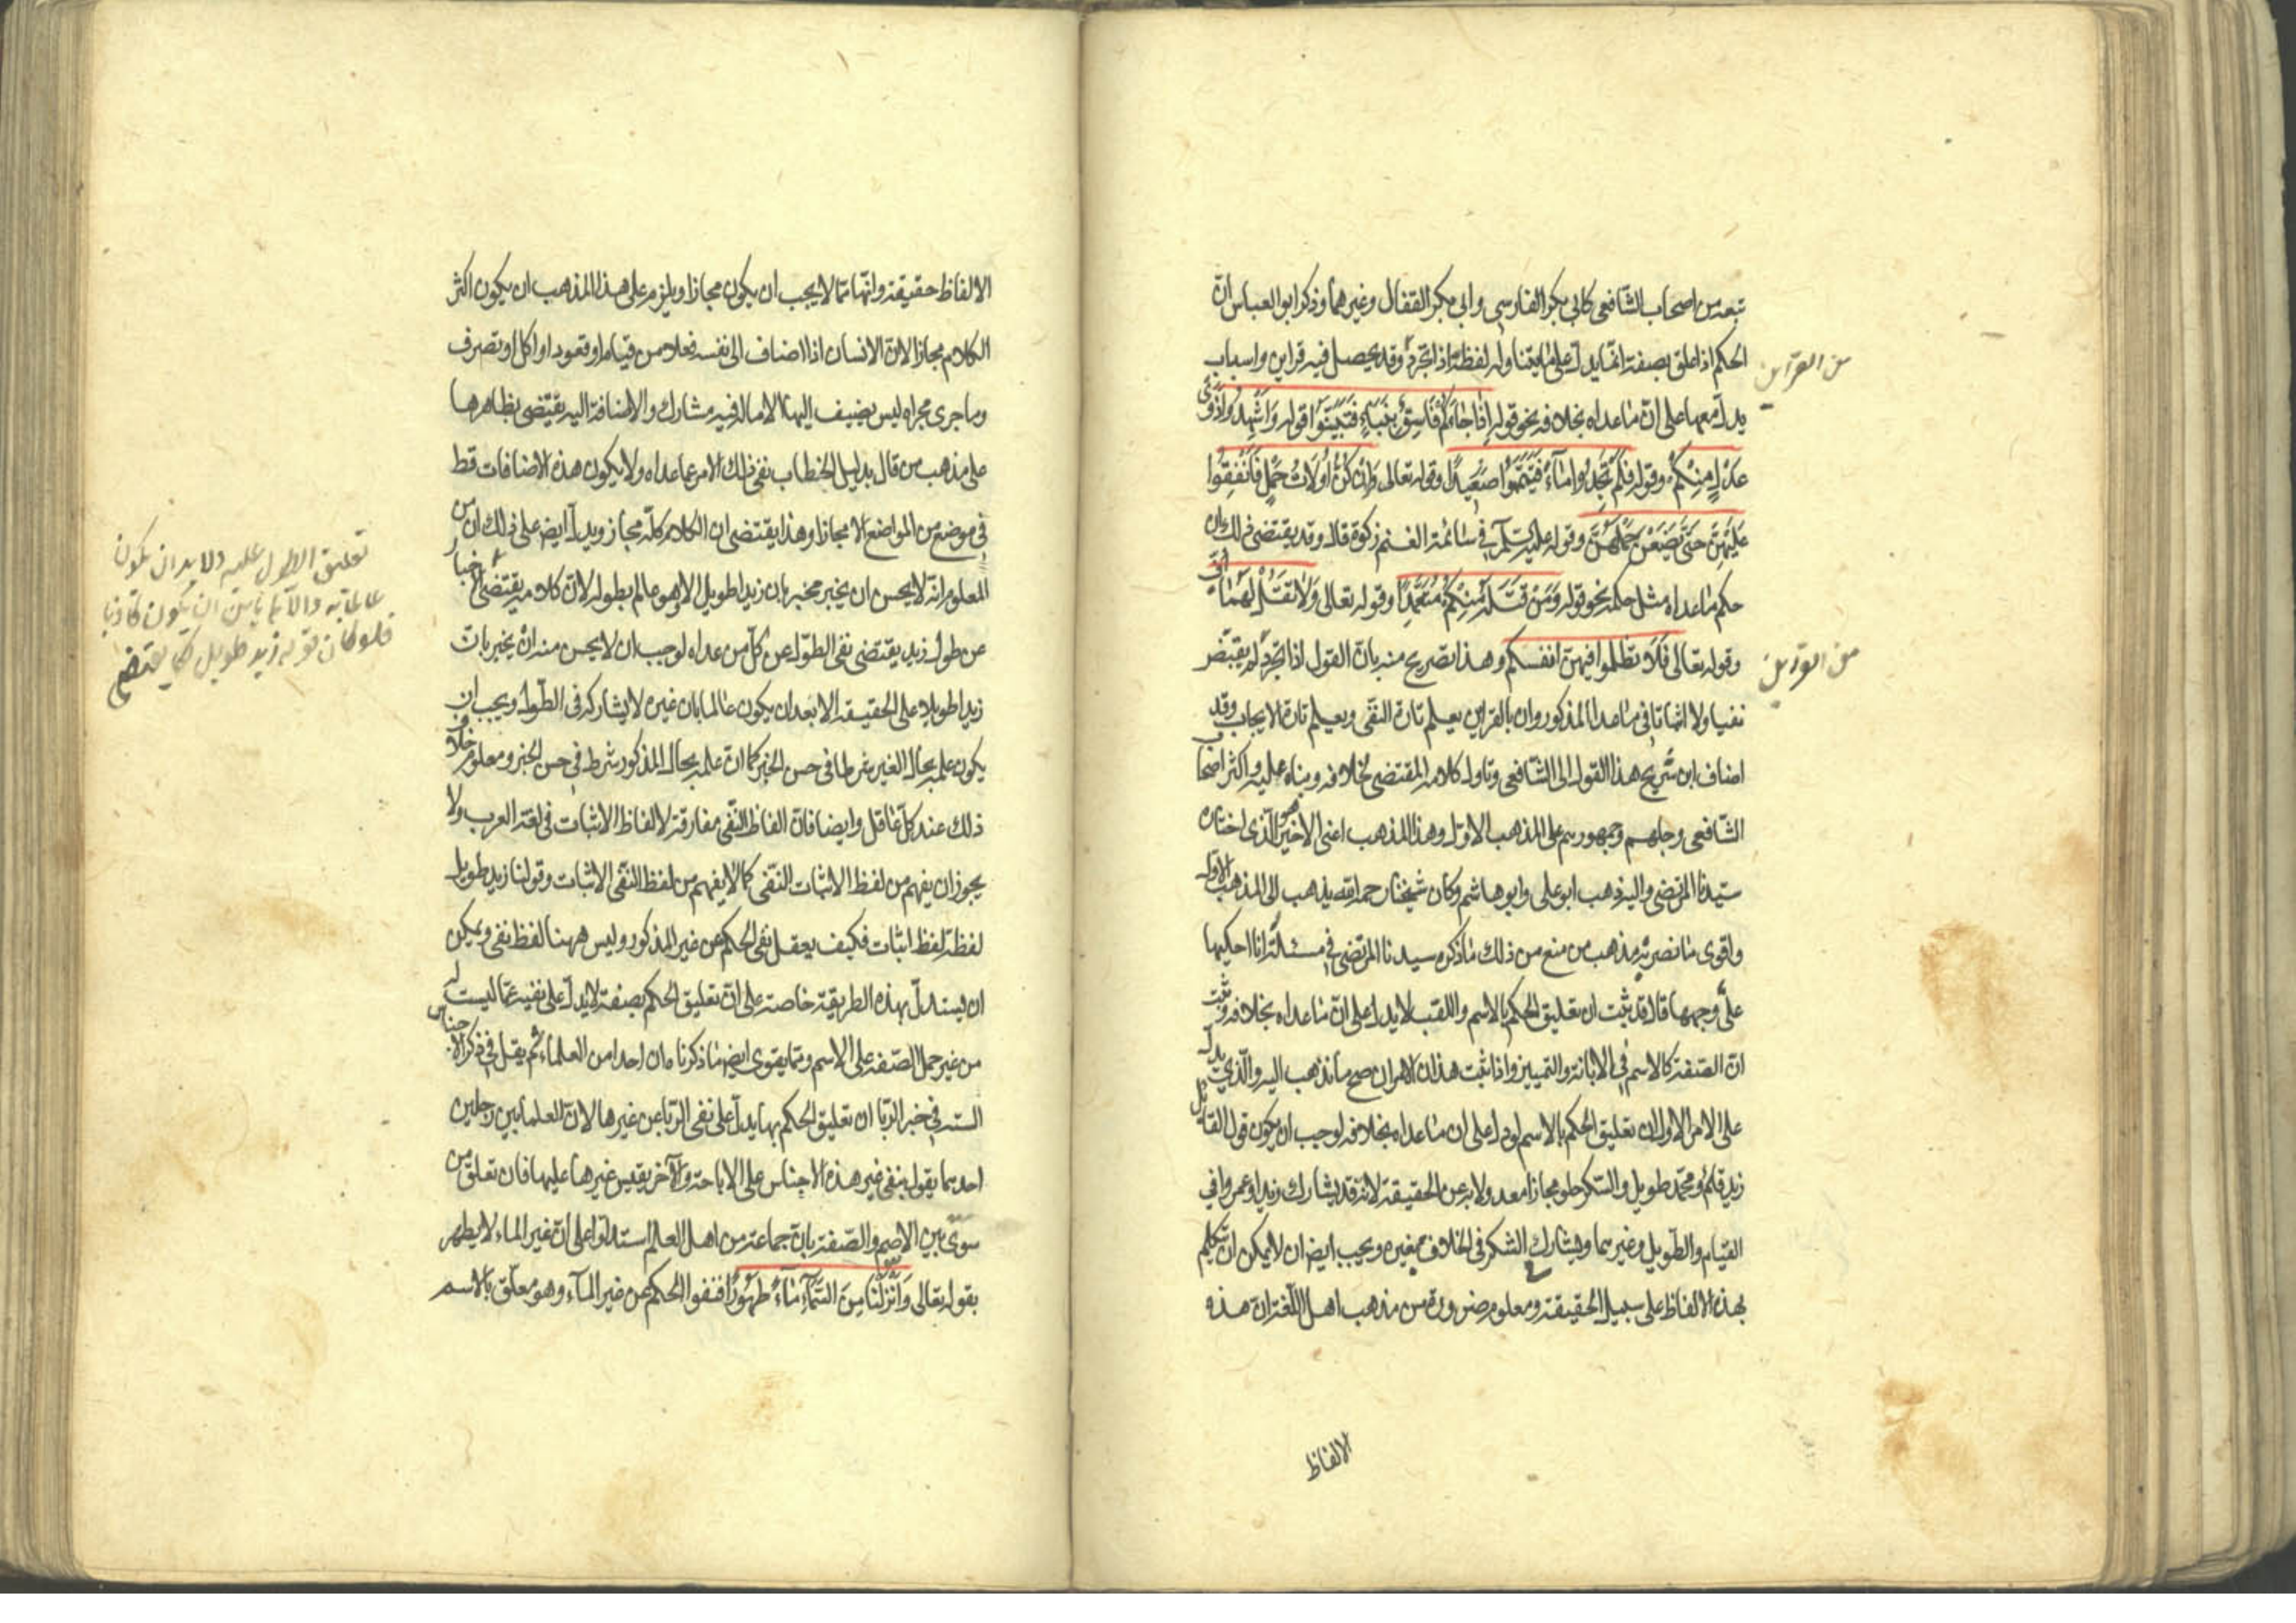 تبعه من اصحاب الشافعی کابی بکر الفارسی وابی بکر القفال وغیرهما وذکر ابو العباس انّ
الحکم اذا علق بصفة انما یدلّ علی ما یتناوله لفظه اذا تجرّد وقد یحصل فیه قراین واسباب
من القرآن
یدلّ معها علی انّ ما عداه بخلافه نحو قوله اِذَا جَاءَکُمْ فَاسِقٌ بِنَبَإٍ فَتَبَیَّنُوا قوله وَاَشْهِدُوا ذَوَیْ
عَدْلٍ مِنْکُمْ وقوله فَلَمْ تَجِدُوا مَاءً فَتَیَمَّمُوا صَعِیدًا وقوله تعالی وَاِنْ کُنَّ اُولَاتُ حَمْلٍ فَاَنْفِقُوا
عَلَیْهِنَّ حَتّٰی یَضَعْنَ حَمْلَهُنَّ وقوله علیه السلم فی سائمة الغنم زکوة قال وقد یقتضی ذلک ان
حکم ما عداه مثل حکمه نحو قوله وَمَنْ قَتَلَهُ مِنْکُمْ مُتَعَمِّدًا وقوله تعالی وَلَا تَقُلْ لَهُمَا اُفٍّ
وقوله تعالی فَلَا تظلموا فیهن انفسکم وهذا تصریح منه بان القول اذا تجرّد لم یقتض
نفیا ولا اثباتا فی ما عدا المذکور وان بالقراین یعلم تارة النفی ویعلم تارة الایجاب وقد
اضاف ابن شریح هذا القول الی الشافعی وتاول کلامه المقتضی بخلافه وبناه علیه واکثر اصحاب
الشافعی وجلهم وجمهورهم علی المذهب الاول وهذا المذهب اعنی الاخیر هو الّذی اختاره
سیدنا المرتضی والیه ذهب ابو علی وابو هاشم وکان شیخنا رحمه الله یذهب الی المذهب الاول
واقوی ما نصر به مذهب من منع من ذلک ما ذکره سیدنا المرتضی فی مسئلة انا احکیها
علی وجهها قال قد ثبت ان تعلیق الحکم بالاسم واللقب لا یدل علی انّ ما عداه بخلافه وثبت
انّ الصفة کالاسم فی الابانة والتمییز واذا ثبت هذان الامران صح ما نذهب الیه والّذی یدل
علی الامر الاول ان تعلیق الحکم بالاسم لو دل علی ان ما عداه بخلافه لوجب ان یکون قول القائل
زید قائم ومحمد طویل والسکر حلو مجازا معدولا به عن الحقیقة لانه قد یشارک زیدا وعمروا فی
القیام والطویل وغیرهما ویشارک الشکر فی الحلاوة غیره ویجب ایض ان لا یمکن ان تکلم
بهذه الالفاظ علی سبیل الحقیقة ومعلوم ضرورة من مذهب اهل اللّغة ان هذه
الالفاظ
الالفاظ حقیقة وانّها مما لا یجب ان یکون مجازا ویلزم علی هذا المذهب ان یکون اکثر
الکلام مجازا لان الانسان اذا اضاف الی نفسه فعلا من قیام او قعود او اکل او تصرف
وما جری مجراه لیس یضیف الیها الا ما له فیه مشارک والاضافة الیه یقتضی بظاهرها
علی مذهب من قال بدلیل الخطاب نفی ذلک الامر عما عداه ولا یکون هذه الاضافات قط
فی موضع من المواضع الا مجازا وهذا یقتضی ان الکلام کلّه مجاز ویدل ایض علی ذلک ان من
المعلوم انّه لا یحسن ان یخبر مخبر بان زیدا طویل الا وهو عالم بطوله لان کلامه یقتضی الاخبار
تعلیق الطول علیه ولا بد ان یکون
عالما به والا لم یامن ان یکون کاذبا
فلو کان قوله زید طویل کما یقتضی
عن طول زید یقتضی نفی الطول عن کلّ من عداه لوجب ان لا یحسن منه ان یخبر بان
زیدا طویلا علی الحقیقة الا بعد ان یکون عالما بان غیره لا یشارکه فی الطول ویجب ان
یکون علمه بحال الغیر شرطا فی حسن الخبر کما ان علمه بحال المذکور شرط فی حسن الخبر ومعلوم خلاف
ذلک عند کلّ عاقل وایضا فانّ الفاظ النفی مفارقة لالفاظ الاثبات فی لغة العرب ولا
یجوز ان یفهم من لفظ الاثبات النفی کما لا یفهم من لفظ النفی الاثبات وقولنا زید طویل
لفظه لفظ اثبات فکیف یعقل نفی الحکم عن غیر المذکور ولیس ههنا لفظ نفی ویمکن
ان یستدلّ بهذه الطریقة خاصة علی انّ تعلیق الحکم بصفة لا یدلّ علی نفیه عمّا لیست له
من غیر حمل الصفة علی الاسم ومما یقوی ایض ما ذکرناه ان احدا من العلماء لم یقل فی ذکر الاجناس
الستة فی خبر الربا ان تعلیق الحکم بها یدل علی نفی الربا عن غیرها لانّ العلماء بین رجلین
احدهما یقول بنفی غیر هذه الاجناس علی الاباحة والآخر یقیس غیرها علیها فان تعلق من
سوّی بین الاسم والصفة بان جماعة من اهل العلم استدلّوا علی ان غیر الماء لا یطهر
بقوله تعالی وَاَنْزَلْنَا مِنَ السَّمَاءِ مَاءً طَهُورًا فنفوا الحکم عن غیر الماء وهو معلّق بالاسم